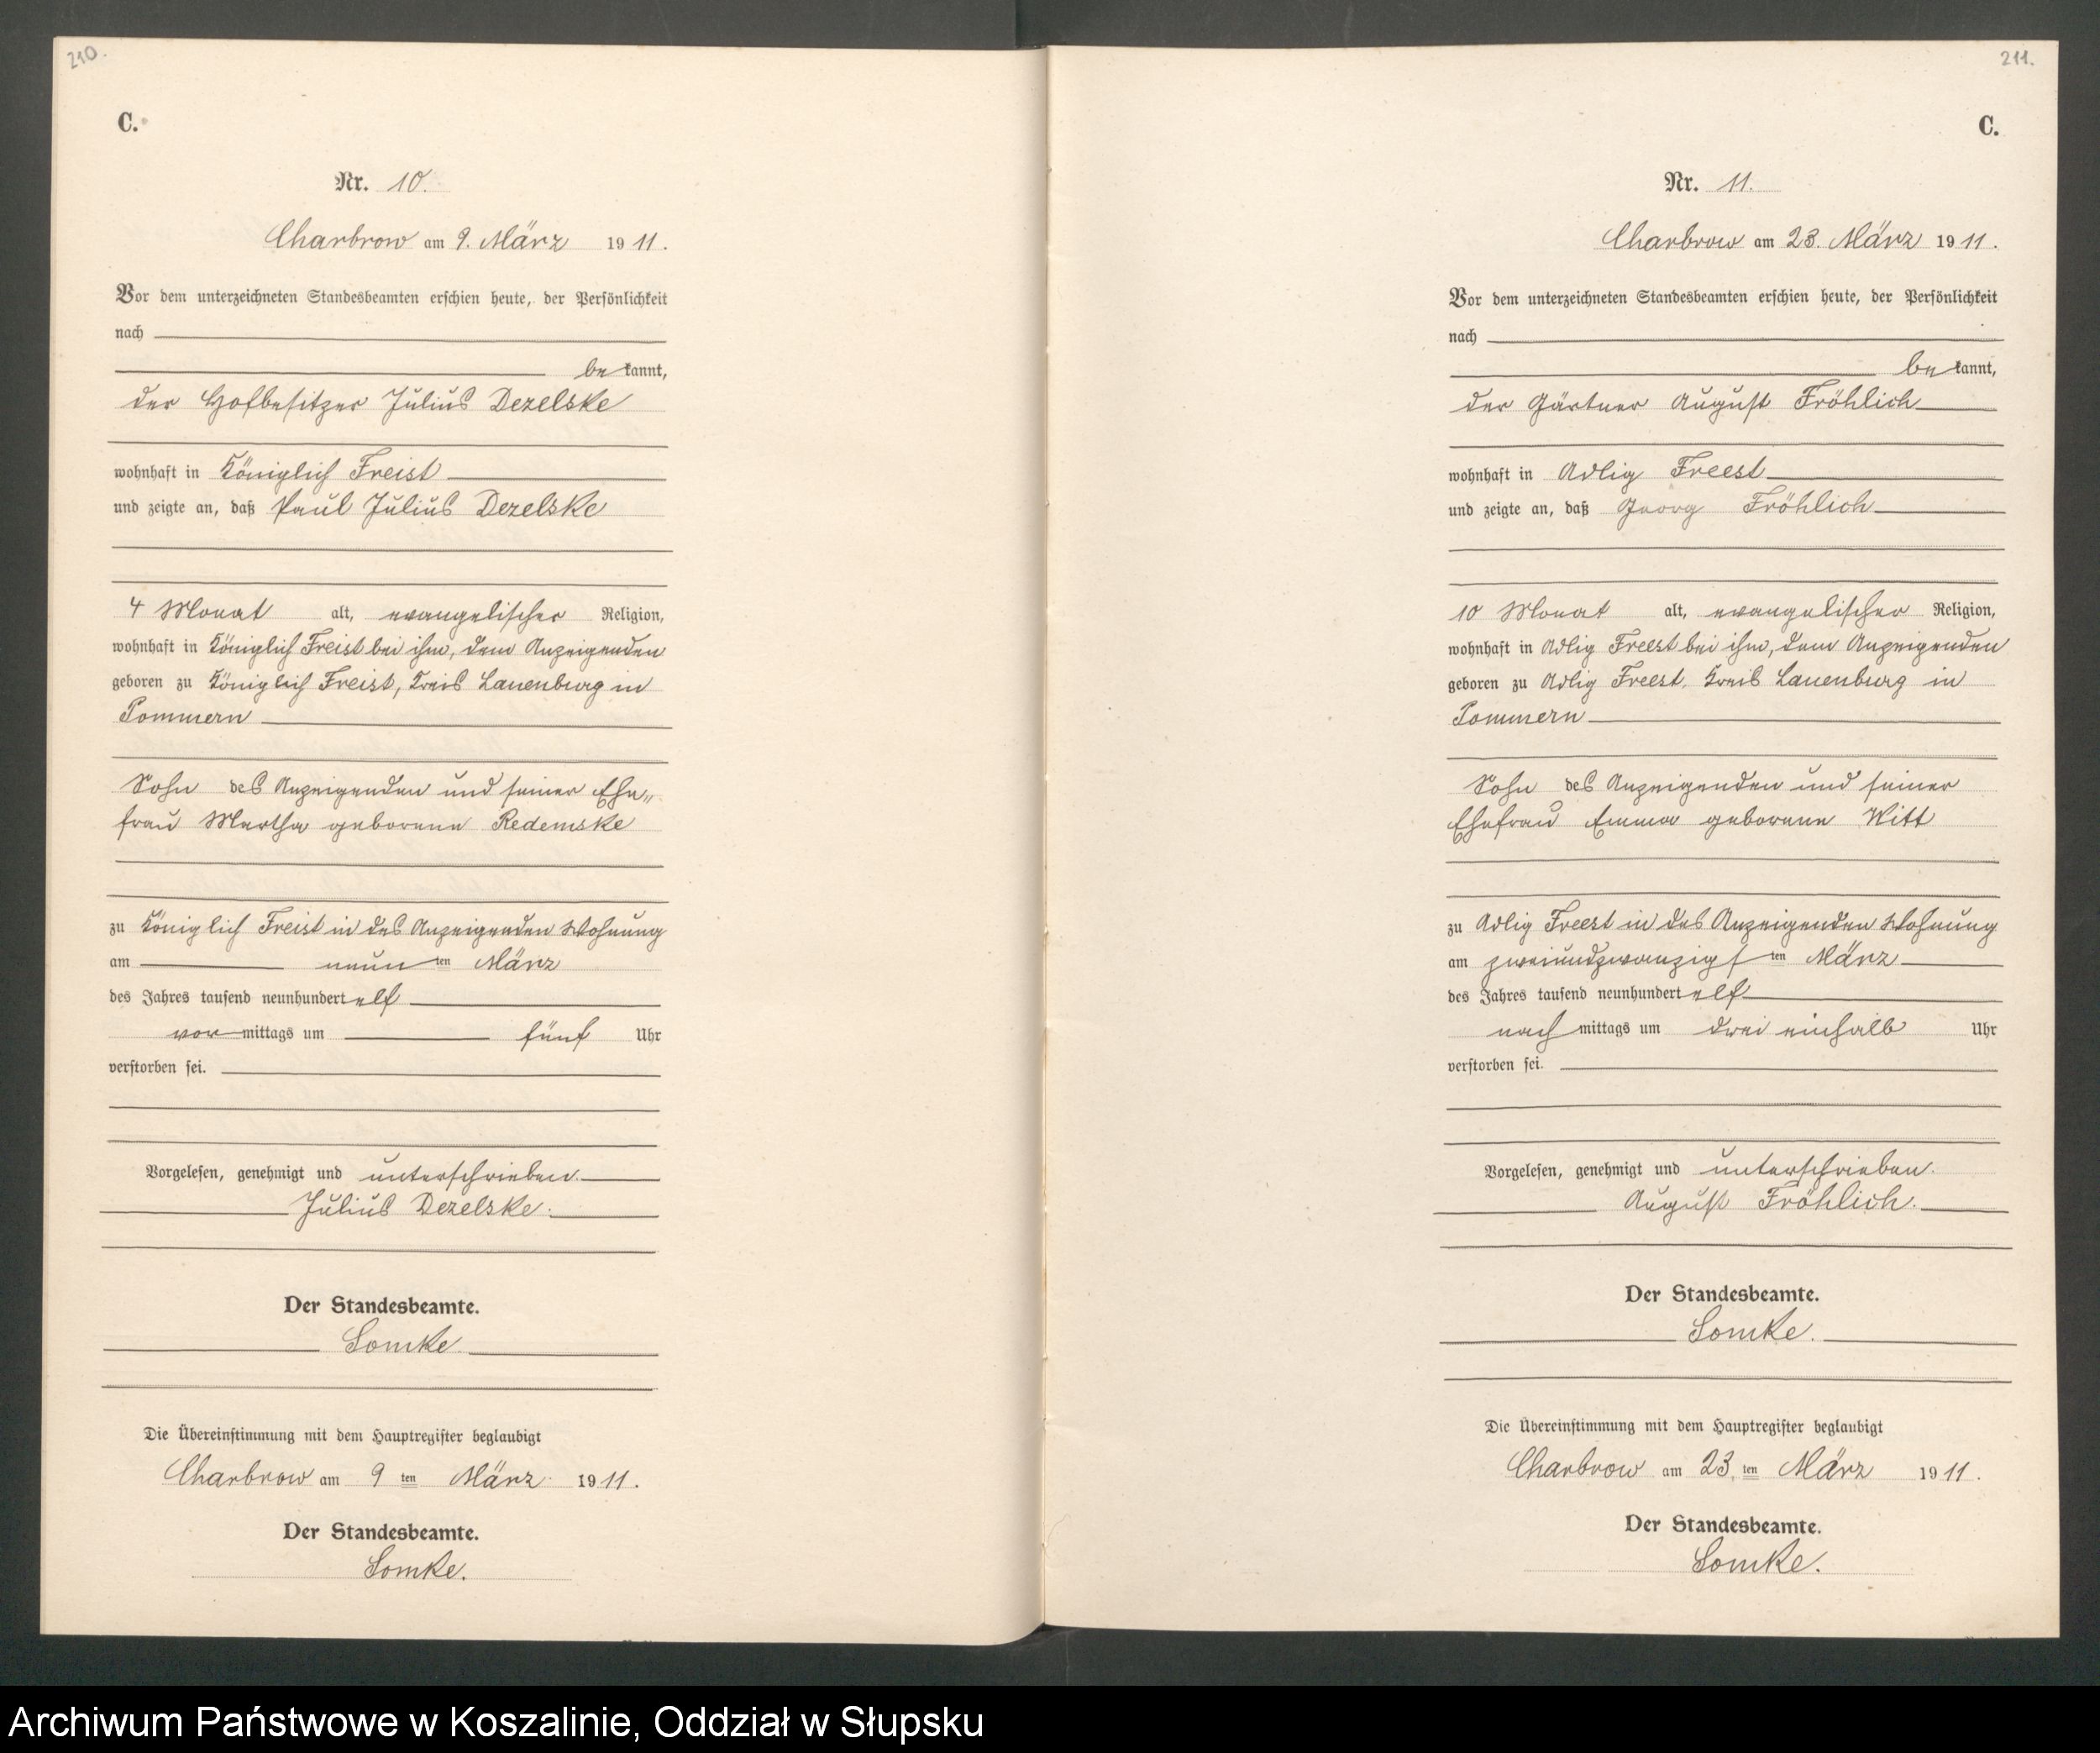 210.
C.
Nr. 10.
Charbrow am 9. März 1911.
Vor dem unterzeichneten Standesbeamten erschien heute, der Persönlichkeit
nach
bekannt,
der Hofbesitzer Julius Dezelske
wohnhaft in Königlich Freist
und zeigte an, daß Paul Julius Dezelske
4 Monat alt, evangelischer Religion,
wohnhaft in Königlich Freist bei ihm, dem Anzeigenden
geboren zu Königlich Freist, Kreis Lauenburg in
Pommern
Sohn des Anzeigenden und seiner Ehe„
frau Martha geborene Redemske
zu Königlich Freist in des Anzeigenden Wohnung
am neunten März
des Jahres tausend neunhundert elf
vormittags um fünf Uhr
verstorben sei.
Vorgelesen, genehmigt und unterschrieben.
Julius Dezelske.
Der Standesbeamte.
Lomke.
Die Übereinstimmung mit dem Hauptregister beglaubigt
Charbrow am 9ten März 1911.
Der Standesbeamte.
Lomke.
211.
C.
Nr. 11.
Charbrow am 23. März 1911.
Vor dem unterzeichneten Standesbeamten erschien heute, der Persönlichkeit
nach
bekannt,
der Gärtner August Fröhlich
wohnhaft in Adlig Freest
und zeigte an, daß Georg Fröhlich
10 Monat alt, evangelischer Religion,
wohnhaft in Adlig Freest bei ihm, dem Anzeigenden
geboren zu Adlig Freest, Kreis Lauenburg in
Pommern
Sohn des Anzeigenden und seiner
Ehefrau Emma geborene Witt
zu Adlig Freest in des Anzeigenden Wohnung
am zweiundzwanzigsten März
des Jahres tausend neunhundert elf
nachmittags um drei einhalb Uhr
verstorben sei.
Vorgelesen, genehmigt und unterschrieben.
August Fröhlich.
Der Standesbeamte.
Lomke.
Die Übereinstimmung mit dem Hauptregister beglaubigt
Charbrow am 23.ten März 1911.
Der Standesbeamte.
Lomke.
Archiwum Państwowe w Koszalinie, Oddział w Słupsku